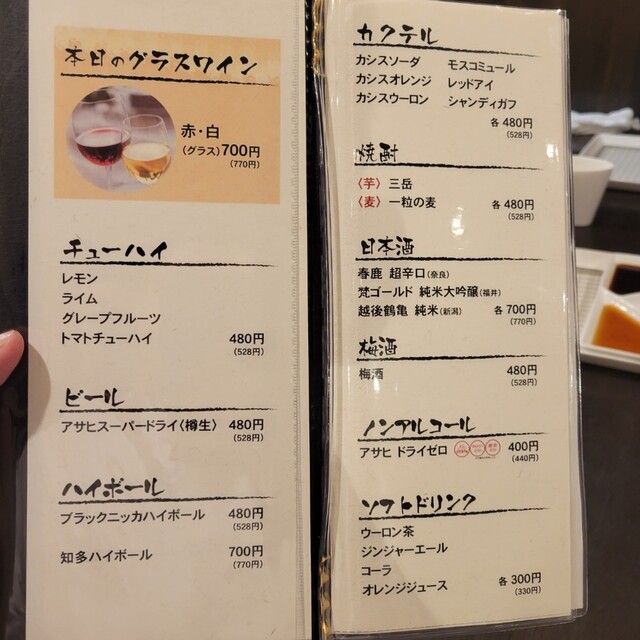 本日のグラスワイン
赤・白
(グラス)700円
(770円)
チューハイ
レモン
ライム
グレープフルーツ
トマトチューハイ 480円
(528円)
ビール
アサヒスーパードライ〈樽生〉 480円
(528円)
ハイボール
ブラックニッカハイボール 480円
(528円)
知多ハイボール 700円
(770円)
カクテル
カシスソーダ モスコミュール
カシスオレンジ レッドアイ
カシスウーロン シャンディガフ
各 480円
(528円)
焼酎
〈芋〉 三岳
〈麦〉 一粒の麦 各 480円
(528円)
日本酒
春鹿 超辛口(奈良)
梵ゴールド 純米大吟醸(福井)
越後鶴亀 純米(新潟) 各 700円
(770円)
梅酒
梅酒 480円
(528円)
ノンアルコール
アサヒ ドライゼロ 400円
(440円)
ソフトドリンク
ウーロン茶
ジンジャーエール
コーラ
オレンジジュース 各 300円
(330円)